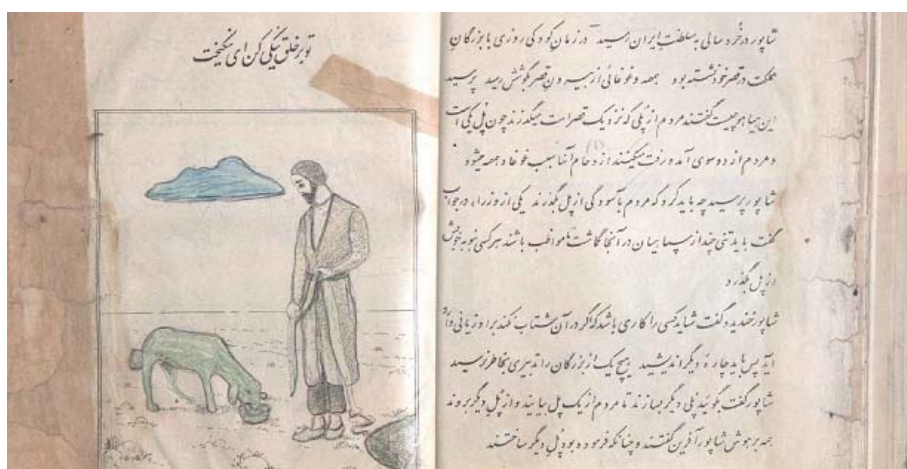 شاپور در خُرد سالی به سلطنت ایران رسید در زمان کودکی روزی با بزرگان
مملکت در قصر خود نشسته بود همهمه و غوغائی از بیرون قصر بگوشش رسید پرسید
این هیاهو چیست گفتند مردم از پُلی که نزدیک قصر است میگذرند چون پل یکی است
و مردم از دو سوی آمد و رفت میکنند ازدحام (۱) آنها سبب غوغا و همهمه میشود
شاپور پرسید چه باید کرد که مردم بآسودگی از پل بگذرند یکی از وزراء در جواب
گفت باید تنی چند از سپاهیان در آنجا گماشت تا مواظب باشند هر کسی بنوبه خویش
از پل بگذرد
شاپور خندید و گفت شاید کسی را کاری باشد که اگر در آن شتاب نکند برا و زیانی وارد
آید پس باید چارهٔ دیگر اندیشید هیچ یک از بزرگان را تدبیری بخاطر نرسید
شاپور گفت بگوئید پُلی دیگر بسازند تا مردم از یک پل بیایند و از پل دیگر بروند
همه بر هوش شاپور آفرین گفتند و چنانکه فرموده بود پل دیگر ساختند
تو بر خلق نیکی کن ای نیکبخت